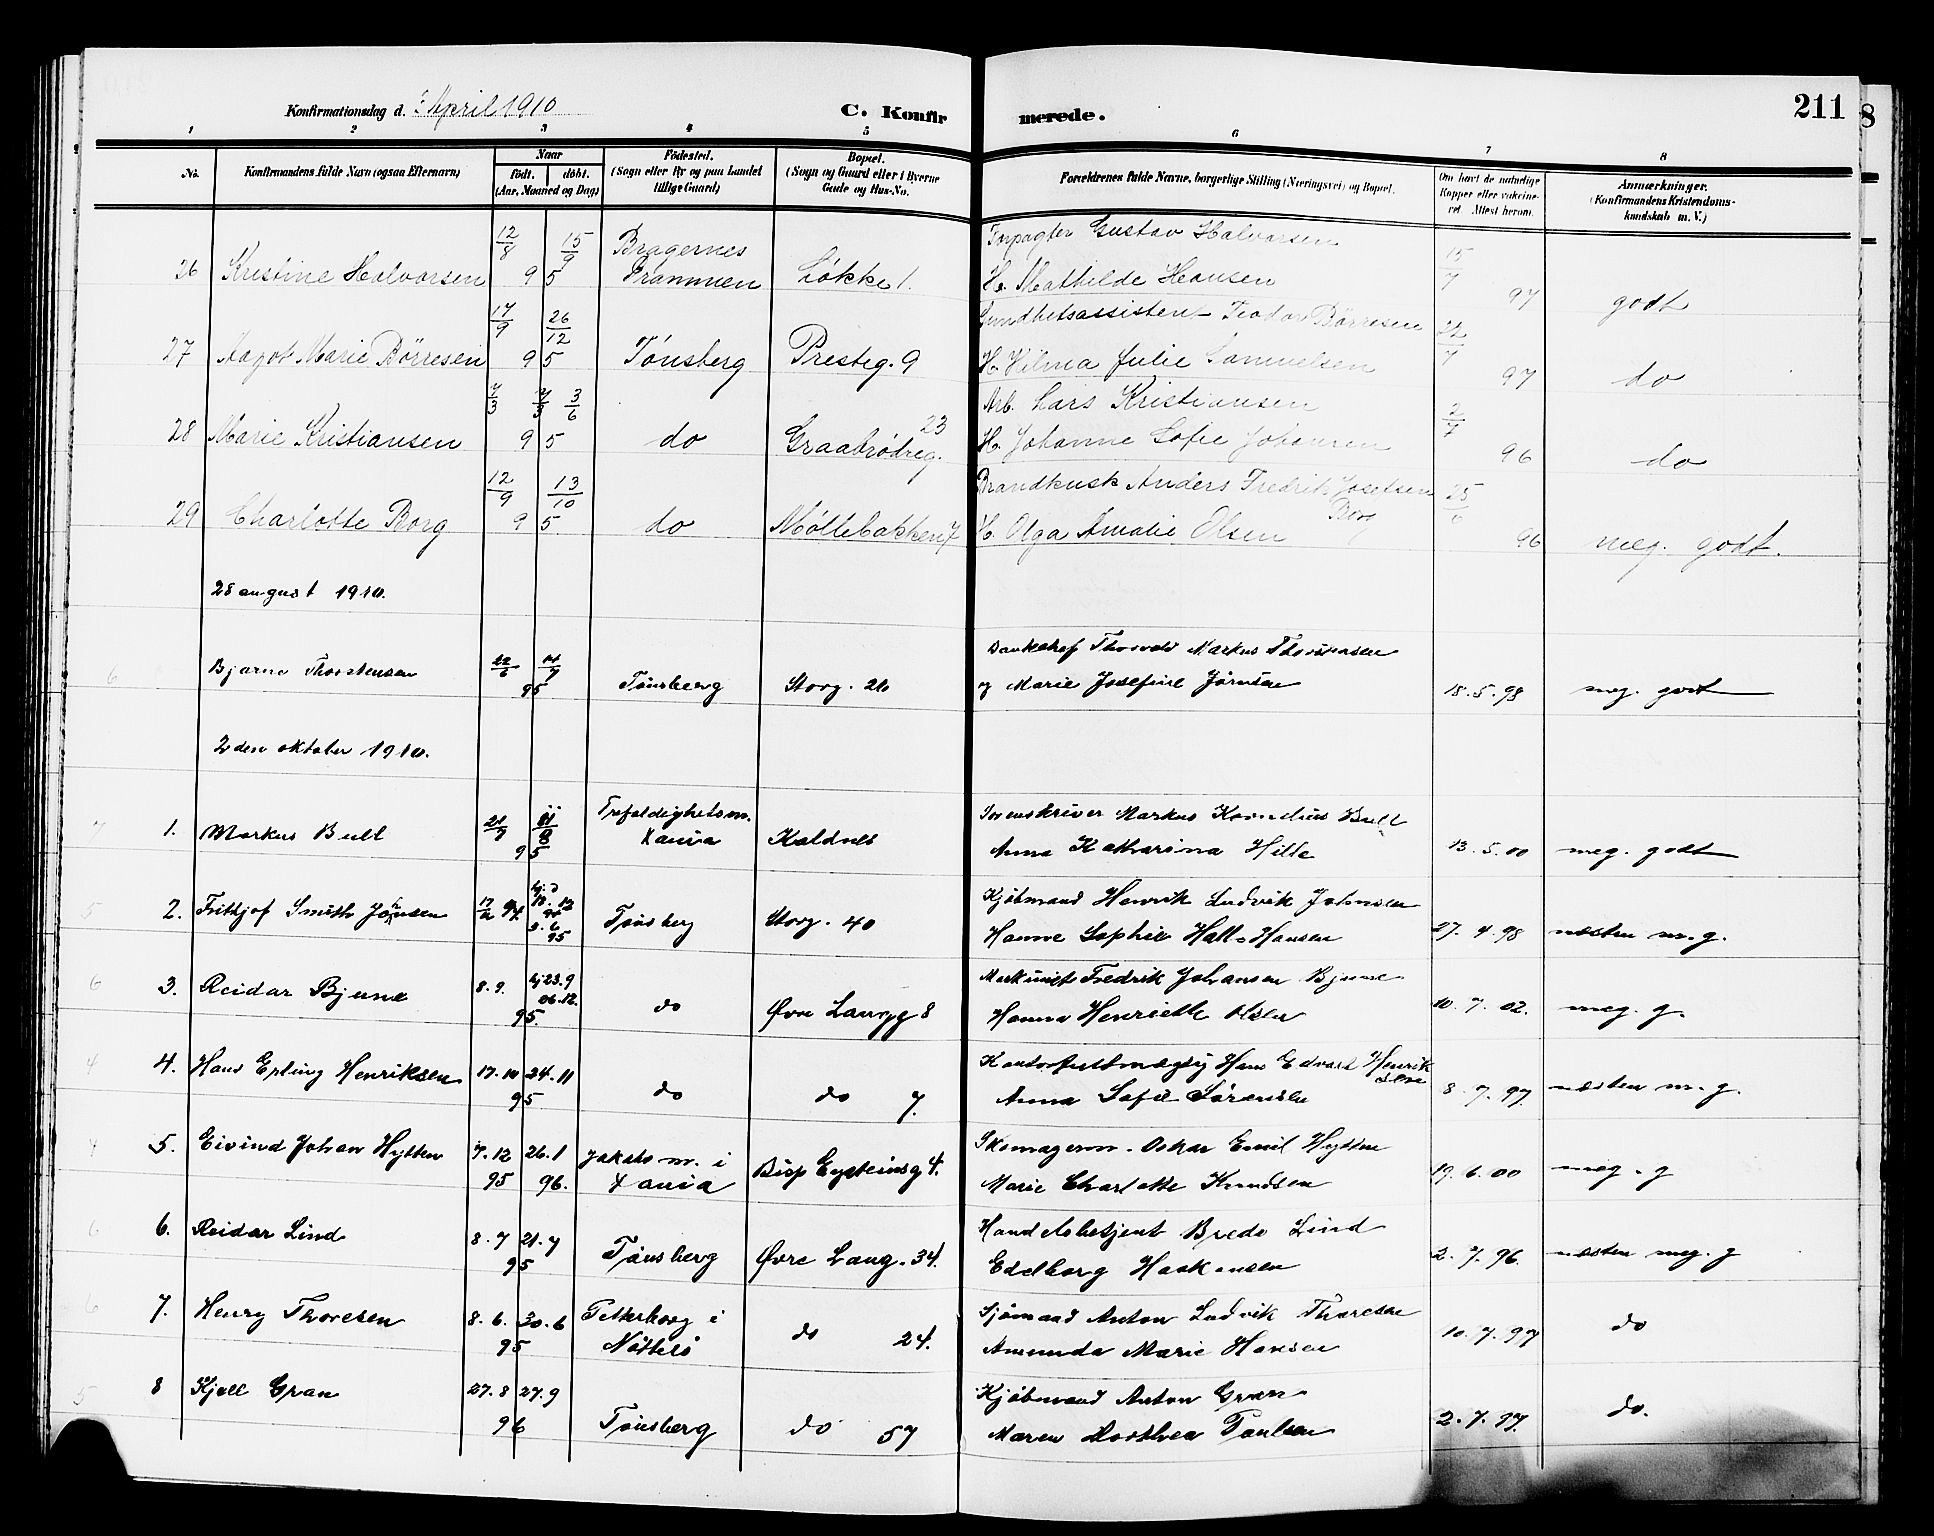 211
Konfirmationsdag d. April 1910 C. Konfirmerede.
1 2 3 4 5 6 7 8
No. Konfirmandens fulde Navn (ogsaa Efternavn) Naar født. døbt. (Aar, Maaned og Dag) Fødested. (Sogn eller By og paa Landet tillige Gaard) Bopæl. (Sogn og Gaard eller i Byerne Gade og Hus-No. Forældrenes fulde Navne, borgerlige Stilling (Næringsvei) og Bopæl. Om havt de naturlige Kopper eller vakcineret. Attest herom. Anmærkninger. (Konfirmandens Kristendomskundskab m. V.)
12/8 15/9 Bragernes Forpagter Gustav Halvorsen 15/7
26 Kristine Halvorsen 95 Drammen Løkke 1. H. Mathilde Hansen 97 godt
17/9 26/12 Sundhetsassistent Teodor Børresen 22/7
27 Aagot Marie Börresen 95 Tönsberg Presteg. 9 H. Hilma Julie Samuelsen 97 do
7/3 3/6 Arb. Lars Kristiansen 2/7
28 Marie Kristiansen 95 do Graabrødreg. 23 H. Johanne Sofie Johansen 96 do
12/9 13/10 Brandkusk Anders Fredrik Josefsen Borg 25/6
29 Charlotte Borg 95 do Møllebakken 7 H. Olga Amalie Olsen 96 meg. godt.
28 august 1910.
6 Bjarne Thorstensen 22/6 95 Tønsberg Storg. 20 Bankchef Thorvald Markus Thorstensen
og Marie Josefine Jørnsen 18.5.98 meg. godt
2den oktober 1910.
7 1. Markus Bull 21/7 95 Trefoldighetsm. Xania Kaldnes Sorenskriver Markus Kornelius Bull
Anna Katharina Hille 13.5.00 meg. godt
5 2. Frithjof Smith Johnsen 17/12 94 hj.d 18.12 94 9.6 95 Tønsberg Storg. 40 Kjøbmand Henrik Ludvik Johnsen
Hanne Sophie Hall-Hansen 27.4.98 næsten m.g.
6 3. Reidar Bjune 8.9. hj 23.9 26.12 95. do Øvre Langg 8 Maskinist Fredrik Johansen Bjune
Hanna Henriette Olsen 10.7.02. meg. g.
4 4. Hans Erling Henriksen 17.10 24.11 95. do do 7. Kontorfuldmægtig Hans Edvard Henriksen
Anna Sofie Sørensen 8.7.97. næsten m.g.
4 5. Eivind Johan Hytten 7.12 95 26.1 96. Jakobs m. i Xania Bisp Eysteinsg 4. Skomagerm. Oskar Emil Hytten
Marie Charlotte Knudsen 19.6.00 meg. g
6 6. Reidar Lind 8.7 21.7 95 Tønsberg Øvre Lang. 34. Handelsbetjent Bredo Lind
Edelborg Haakonsen 2.7.96. næsten meg. g
6 7. Henry Thoresen 8.6. 30.6 95 Petterborg i Nøtterø do 24. Sjømand Anton Ludvik Thoresen
Amunda Marie Hansen 10.7.97 do
5 8 Kjell Gran 27.8 27.9 96 Tønsberg do 57 Kjøbmand Anton Gran
Maren Dorthea Paulsen 2.7.97. do.